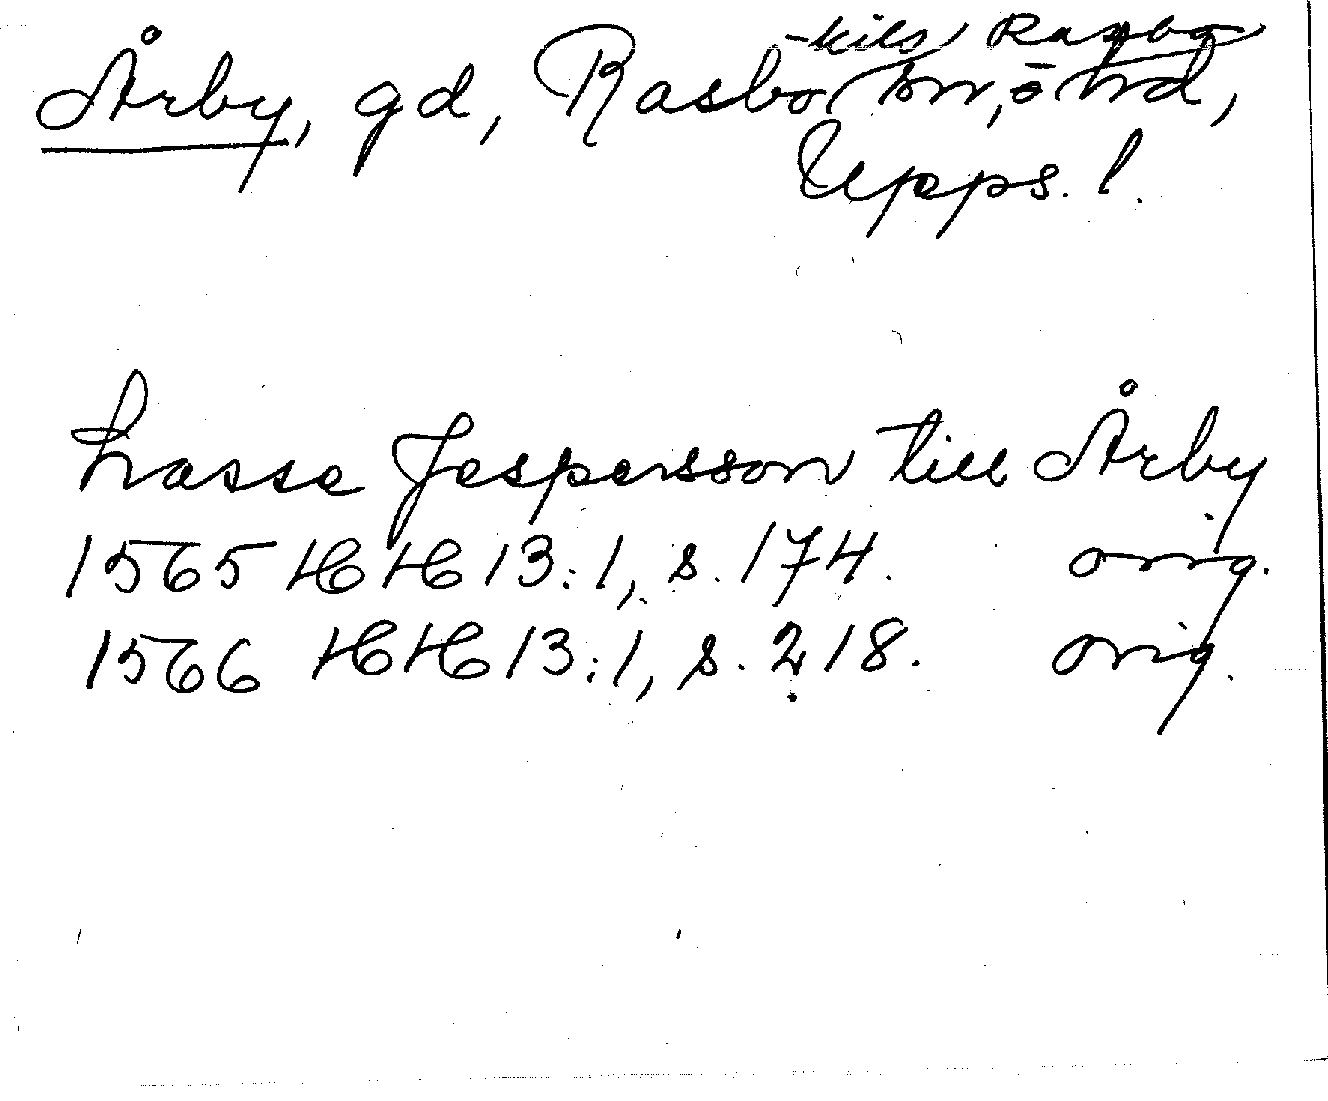 -kils Rasbo
Årby, gd, Rasbo sn, o hd,
Upps. l.
Lasse Jespersson till Årby
1565 HH 13:1, s. 174. orig.
1566 HH 13:1, s. 218. orig.